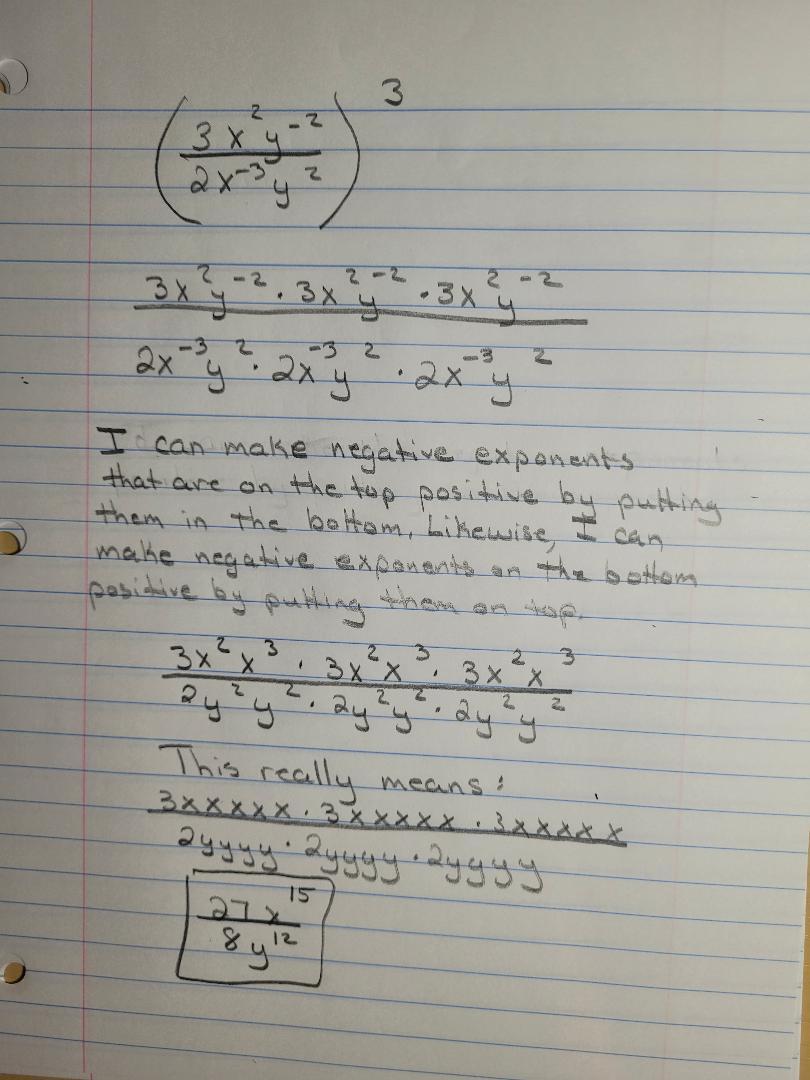 (3x²y⁻²/2x⁻³y²)³
3x²y⁻² · 3x²y⁻² · 3x²y⁻²
2x⁻³y² · 2x⁻³y² · 2x⁻³y²
I can make negative exponents
that are on the top positive by putting
them in the bottom. Likewise, I can
make negative exponents on the bottom
positive by putting them on top.
3x²x³ · 3x²x³ · 3x²x³
2y²y² · 2y²y² · 2y²y²
This really means:
3xxxxx · 3xxxxx · 3xxxxx
2yyyy · 2yyyy · 2yyyy
27x¹⁵
8y¹²